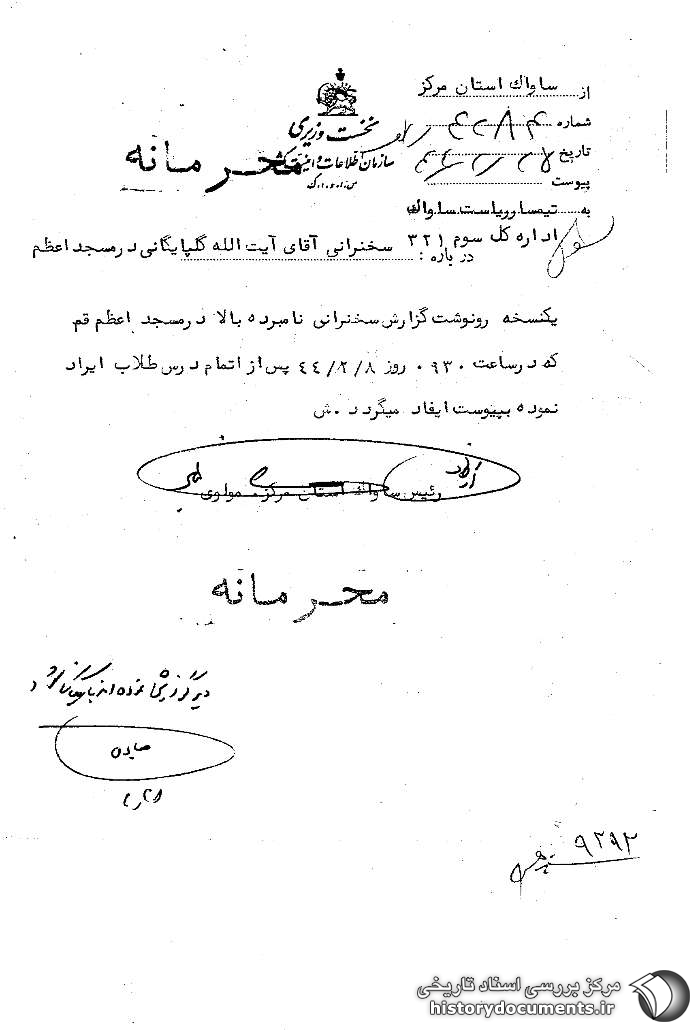 از ساواك استان مركز
شماره
تاریخ
پیوست
نخست وزیری
سازمان اطلاعات و امنیت کشور
س.ا.و.ا.ک
محرمانه
به تیمسار ریاست ساواك
اداره کل سوم ۳۲۱
در باره : سخنرانی آقای آیت الله گلپایگانی در مسجد اعظم
یکنسخه رونوشت گزارش سخنرانی نامبرده بالا در مسجد اعظم قم
که در ساعت ۰۹۳۰ روز ۴۴/۲/۸ پس از اتمام درس طلاب ایراد
نموده بپیوست ایفاد میگردد .ش
رئیس ساواك استان مرکز مولوی
محرمانه
۹۲۹۲
مرکز بررسی اسناد تاریخی
historydocuments.ir